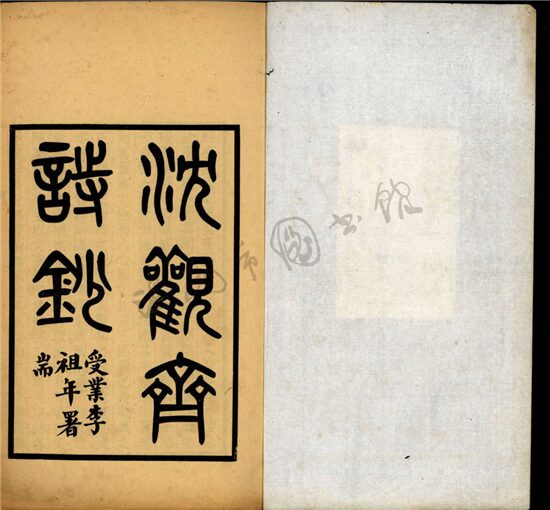 沈觀齋
詩鈔
受業李
祖年署
耑
圖書館